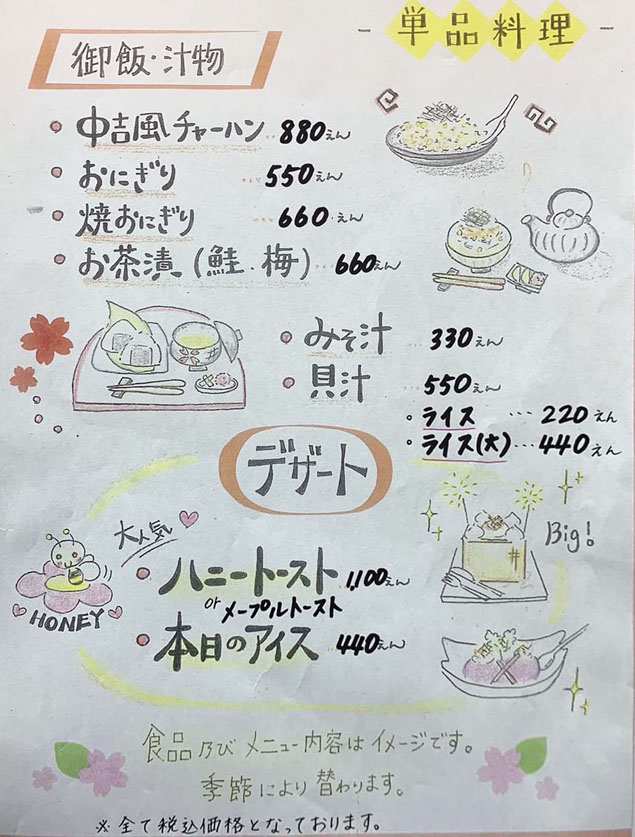 - 単品料理 -
御飯・汁物
・中吉風チャーハン 880えん
・おにぎり 550えん
・焼おにぎり ... 660えん
・お茶漬(鮭.梅)... 660えん
・みそ汁 330えん
・貝汁 550えん
・ライス ... 220えん
・ライス(大)... 440えん
デザート
大人気
Big!
HONEY
・ハニートースト 1,100えん
or メープルトースト
・本日のアイス 440えん
食品及びメニュー内容はイメージです。
季節により替わります。
※全て税込価格となっております。